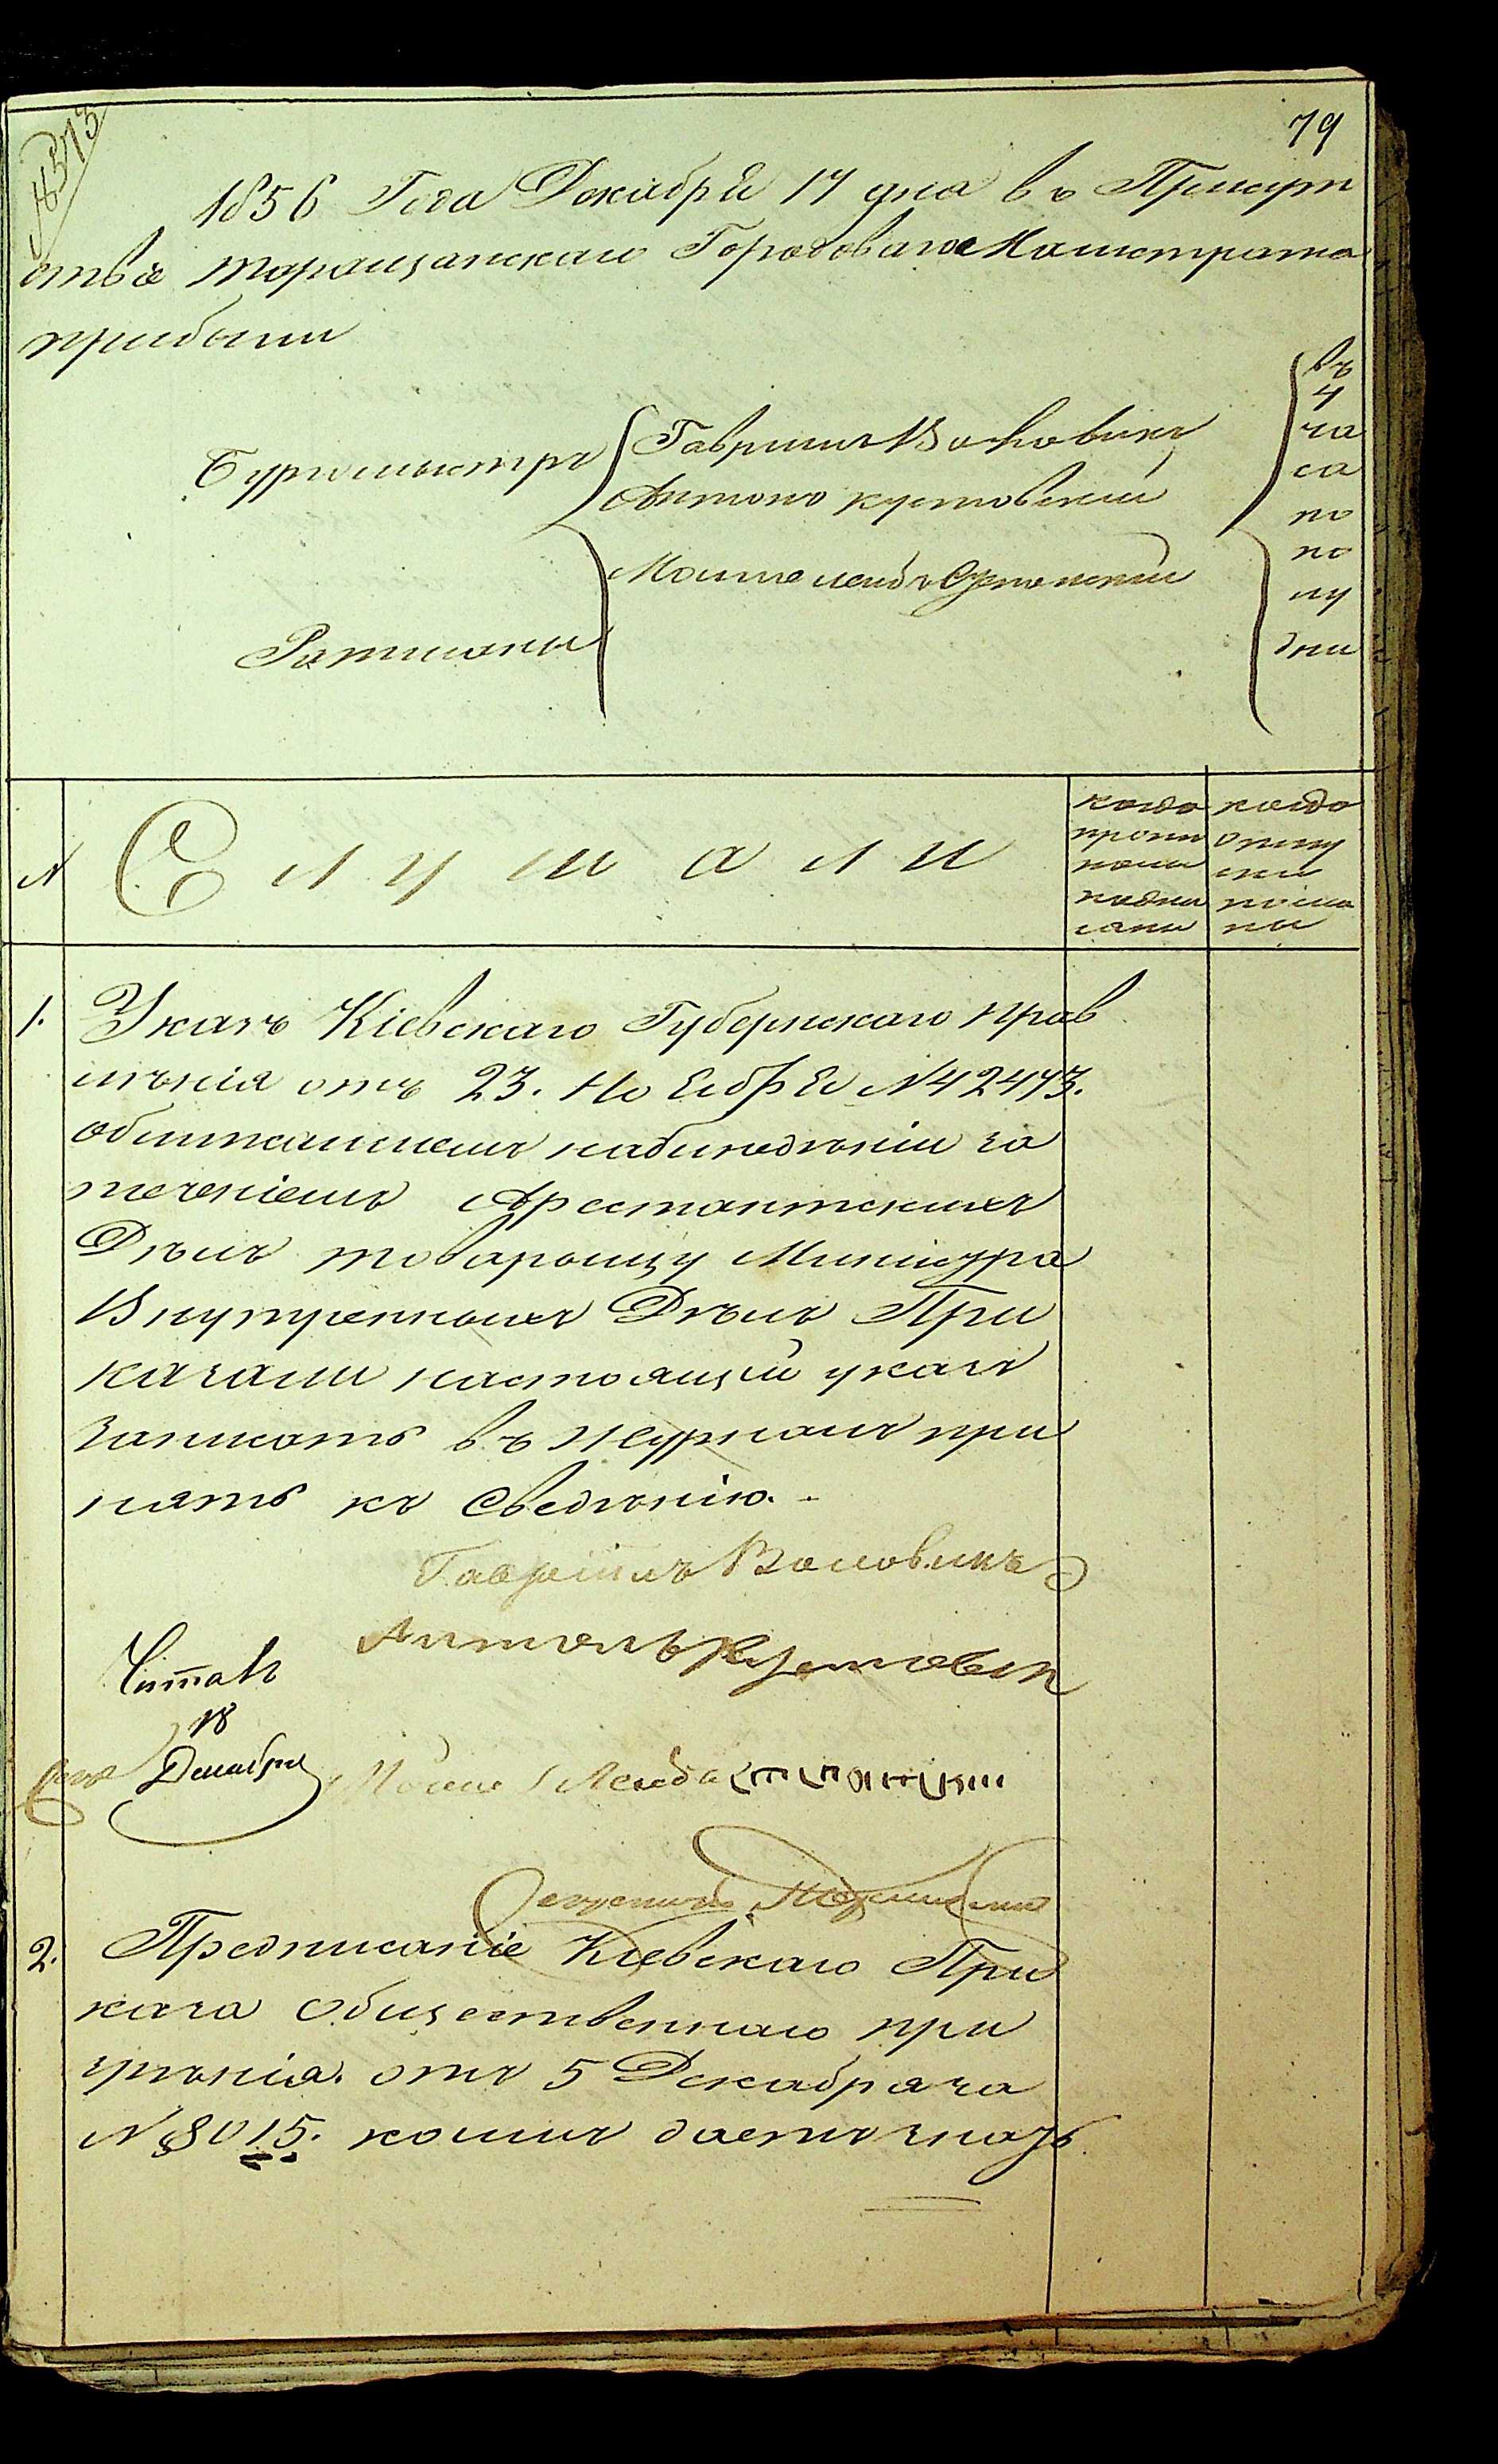 79
№ 373
1856 Года Декабря 17 дня въ Присут
ствіе таращанскаго Городоваго Магистрата
прибыли
Бургомистръ
Гаврилъ Воловикъ
Антонъ кустовскій
Мошко лейба
Ратманы
въ
4
ча
са
по
по
лу
дни
№
Слушали
когда
прото
колы
подпи
саны
когда
отпу
ски
посла
ны
1.
Указъ Кіевскаго Губернскаго прав
лѣнія отъ 23. Ноября №42473.
облежащемъ наблюдѣніи за
теченіемъ Арестантскихъ
Дѣлъ товарыщу Министра
Внутренныхъ Дѣлъ При
казали настоящій указъ
записать въ журналъ при
нять къ Сведѣнію. -
Гавріилъ Воловикъ
Антонъ Кустовск
Читалъ
18
Декабря
Мошко Лейба
2.
Предписаніе Кіевскаго При
каза Общественнаго при
зрѣнія. отъ 5 Декабря за
№ 8015. коимъ даетъ знать